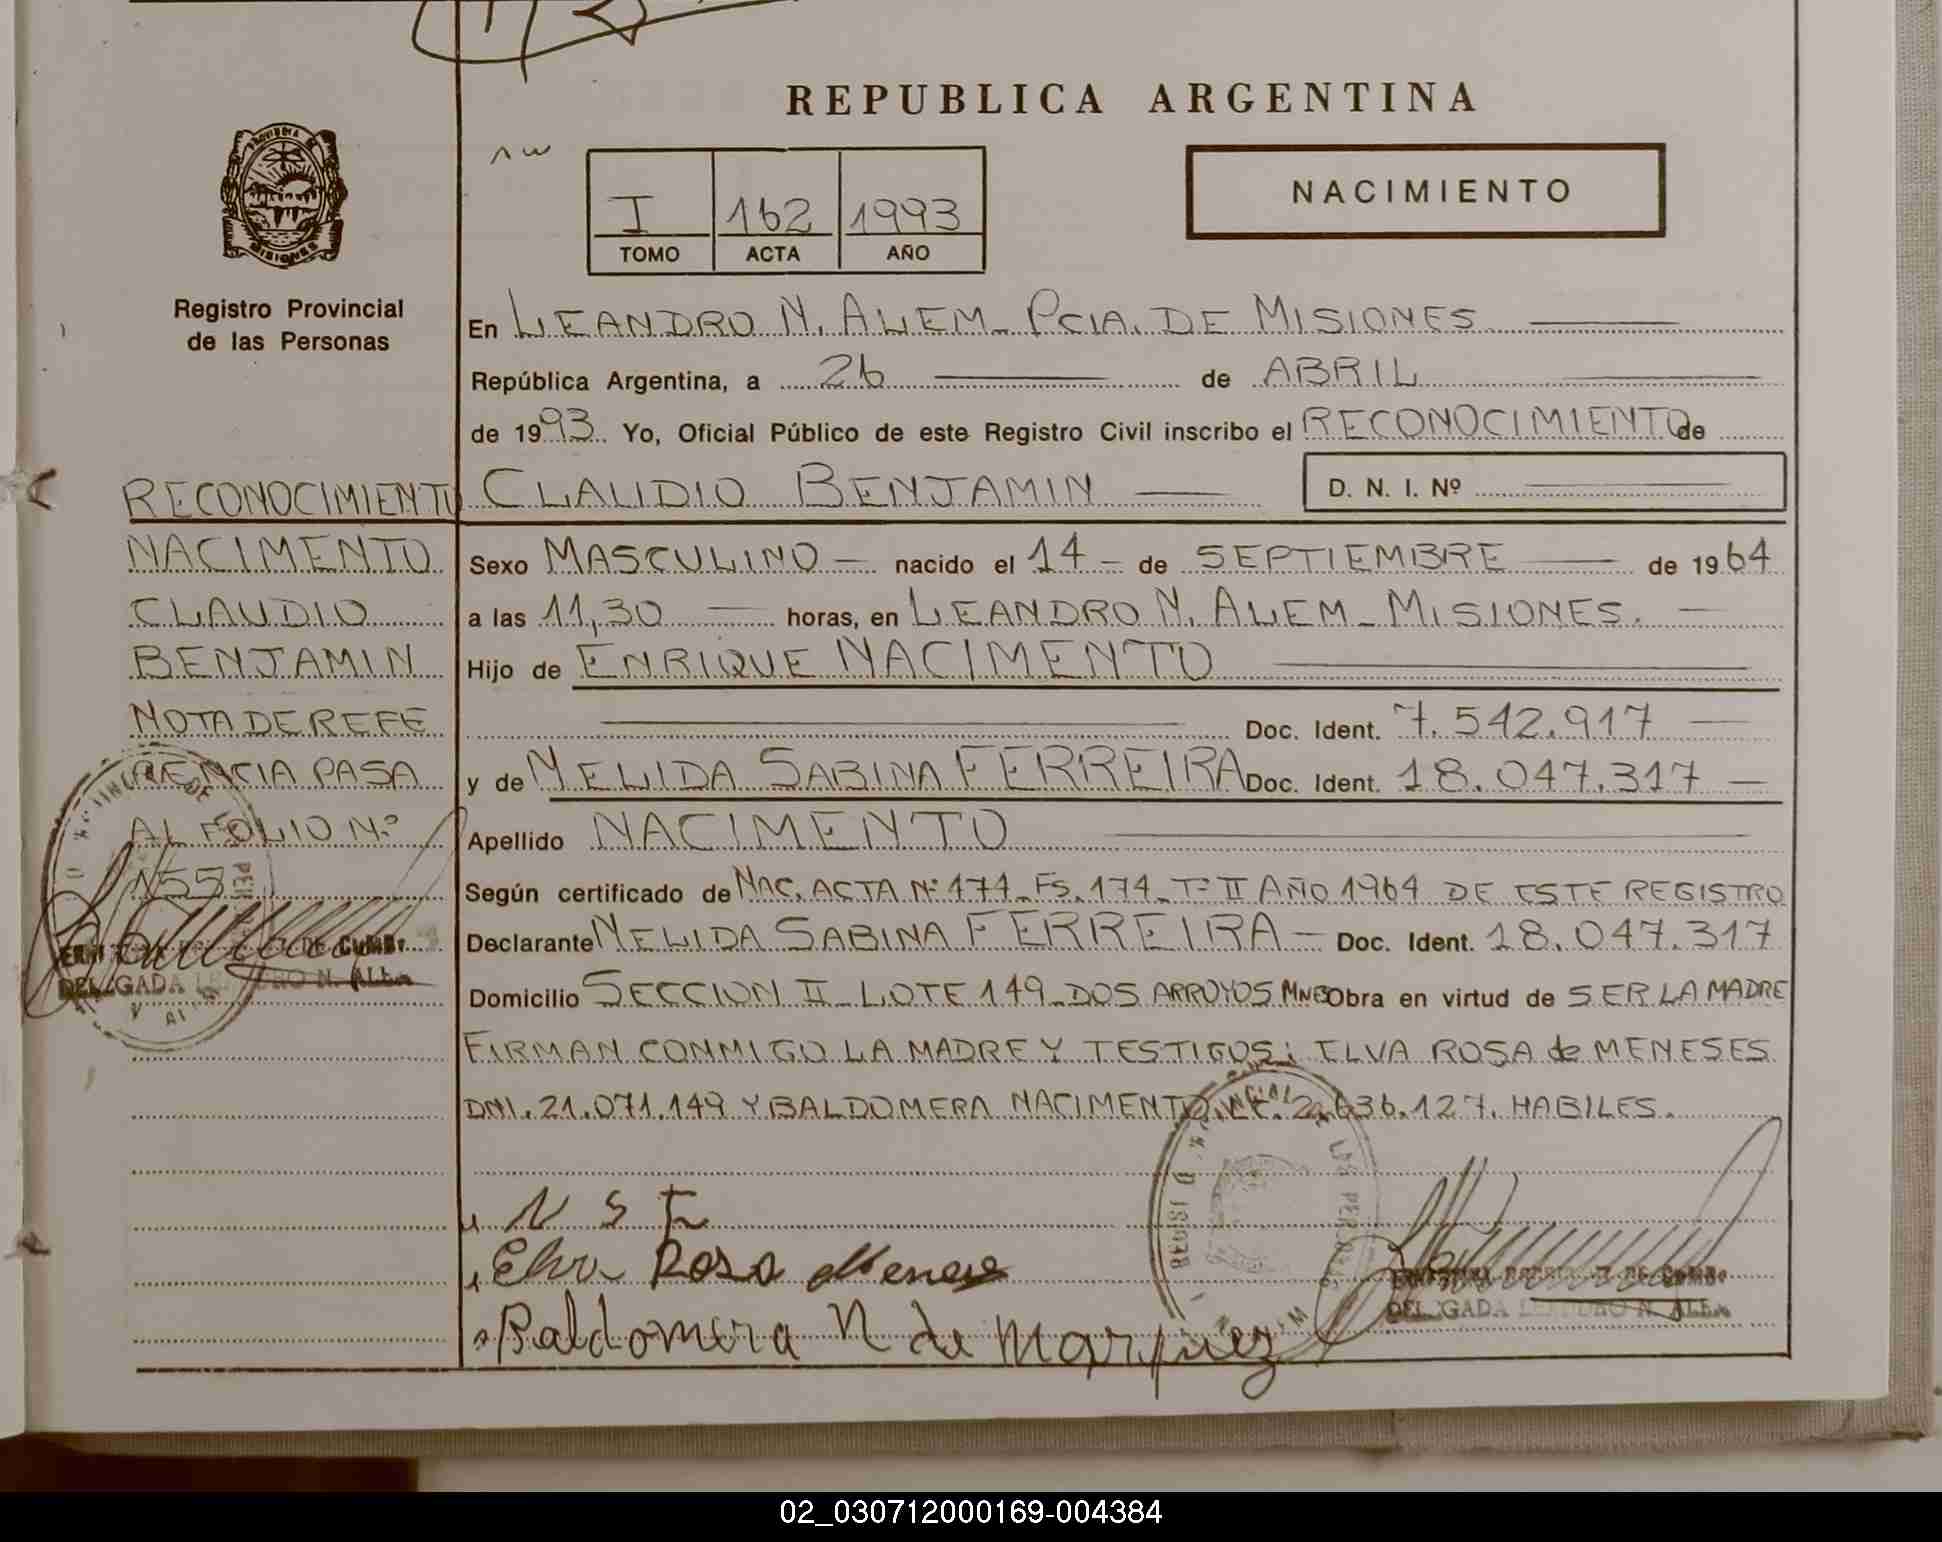 REPUBLICA ARGENTINA
PROVINCIA DE MISIONES
I 162 1993
TOMO ACTA AÑO
NACIMIENTO
Registro Provincial
de las Personas
RECONOCIMIENTO
NACIMENTO
CLAUDIO
BENJAMIN
NOTA DE REFE
RENCIA PASA
AL FOLIO N.º
155
En LEANDRO N. ALEM_ PCIA. DE MISIONES
República Argentina, a 26 de ABRIL
de 1993. Yo, Oficial Público de este Registro Civil inscribo el RECONOCIMIENTO de
CLAUDIO BENJAMIN — D. N. I. Nº —
Sexo MASCULINO — nacido el 14 — de SEPTIEMBRE — de 1964
a las 11,30 — horas, en LEANDRO N. ALEM_ MISIONES. —
Hijo de ENRIQUE NACIMENTO
Doc. Ident. 7.542.917 —
y de NELIDA SABINA FERREIRA Doc. Ident. 18.047.317 —
Apellido NACIMENTO
Según certificado de NAC. ACTA Nº 174_ Fs. 174_ Tº II AÑO 1964 DE ESTE REGISTRO
Declarante NELIDA SABINA FERREIRA — Doc. Ident. 18.047.317
Domicilio SECCION II_ LOTE 149_ DOS ARROYOS Mnes Obra en virtud de SER LA MADRE
FIRMAN CONMIGO LA MADRE Y TESTIGOS: ELVA ROSA de MENESES
DNI. 21.071.149 Y BALDOMERA NACIMENTO, LC. 2.636.127. HABILES.
N S F
Elva Rosa Menese
Baldomera N de Marquez
DELEGADA LEANDRO N. ALEM
DELEGADA LEANDRO N. ALEM
02_030712000169-004384